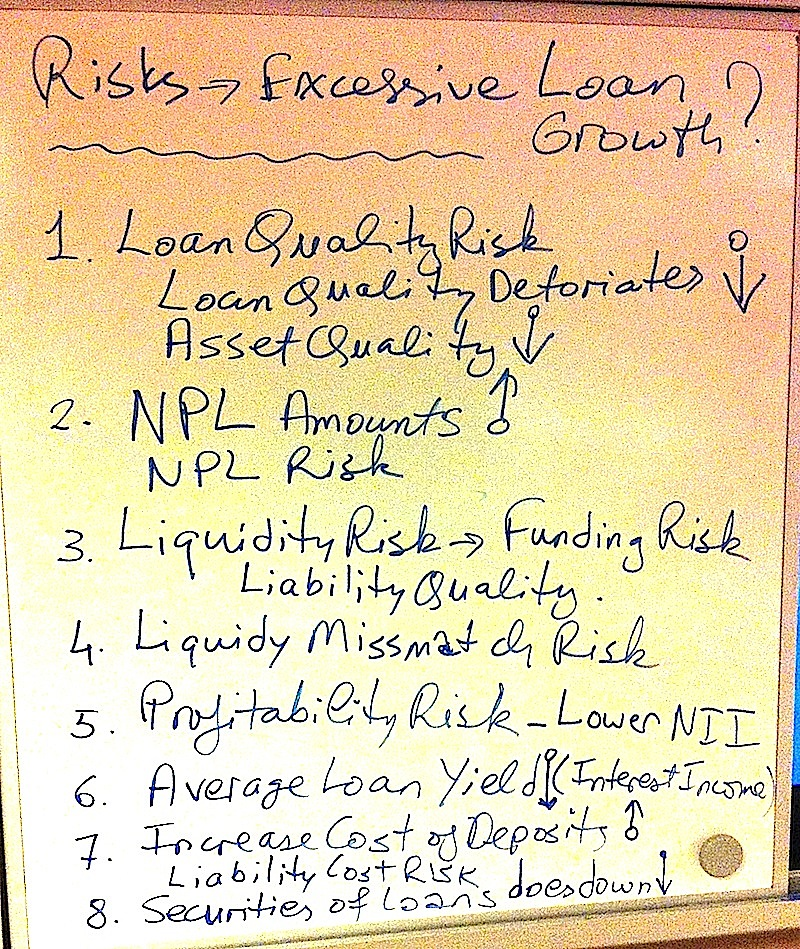 Risks → Excessive Loan
Growth?
1. Loan Quality Risk
Loan Quality Detoriates ↓
Asset Quality ↓
2. NPL Amounts ↑
NPL Risk
3. Liquidity Risk → Funding Risk
Liability Quality.
4. Liquidy Missmatch Risk
5. Profitability Risk - Lower NII
6. Average Loan Yield ↓ (Interest Income)
7. Increase Cost of Deposits ↑
Liability Cost Risk
8. Securities of Loans does down ↓